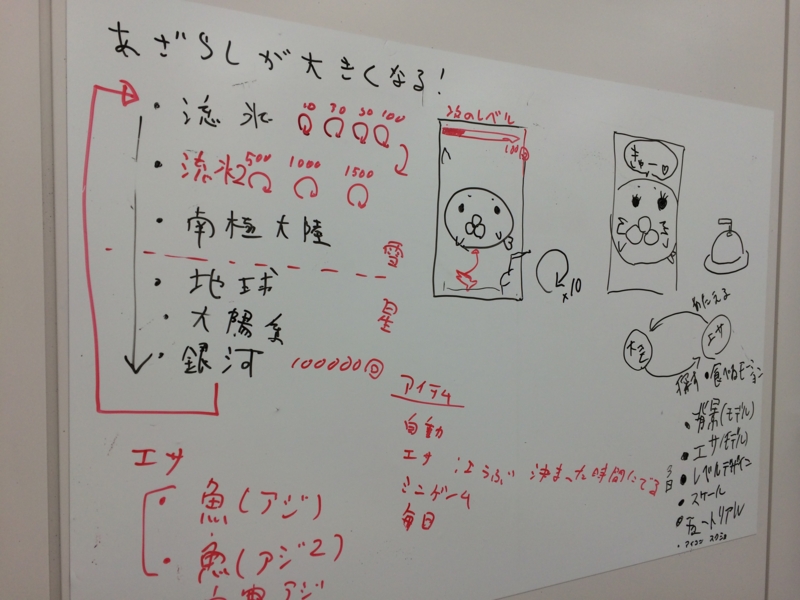 あざらしが大きくなる!
・流氷 10 30 50 100
・流氷2 500 1000 1500
・南極大陸
雪
・地球
・太陽系
星
・銀河 100000回
エサ
・魚(アジ)
・魚(アジ2)
アジ
アイテム
自動
エサ
決まった時間にでる
ミニゲーム
毎日
次のレベル
100回
×10
きゅー♡
あたえる
エサ
・食べるモーション
・背景(モデル)
・エサ(モデル)
・レベルデザイン
・スケール
・チュートリアル
・アイコン スクショ